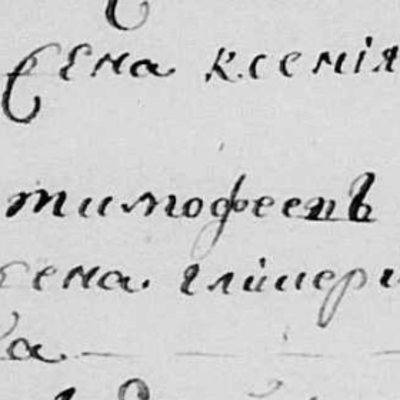 Жена ксенія
тимофеевъ
жена. глікери
ка.